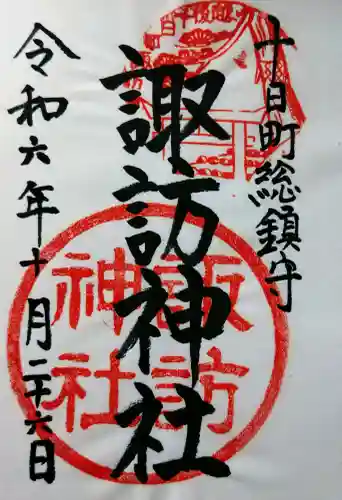 十日町総鎮守
諏訪神社
令和六年十月二十六日
諏訪
神社